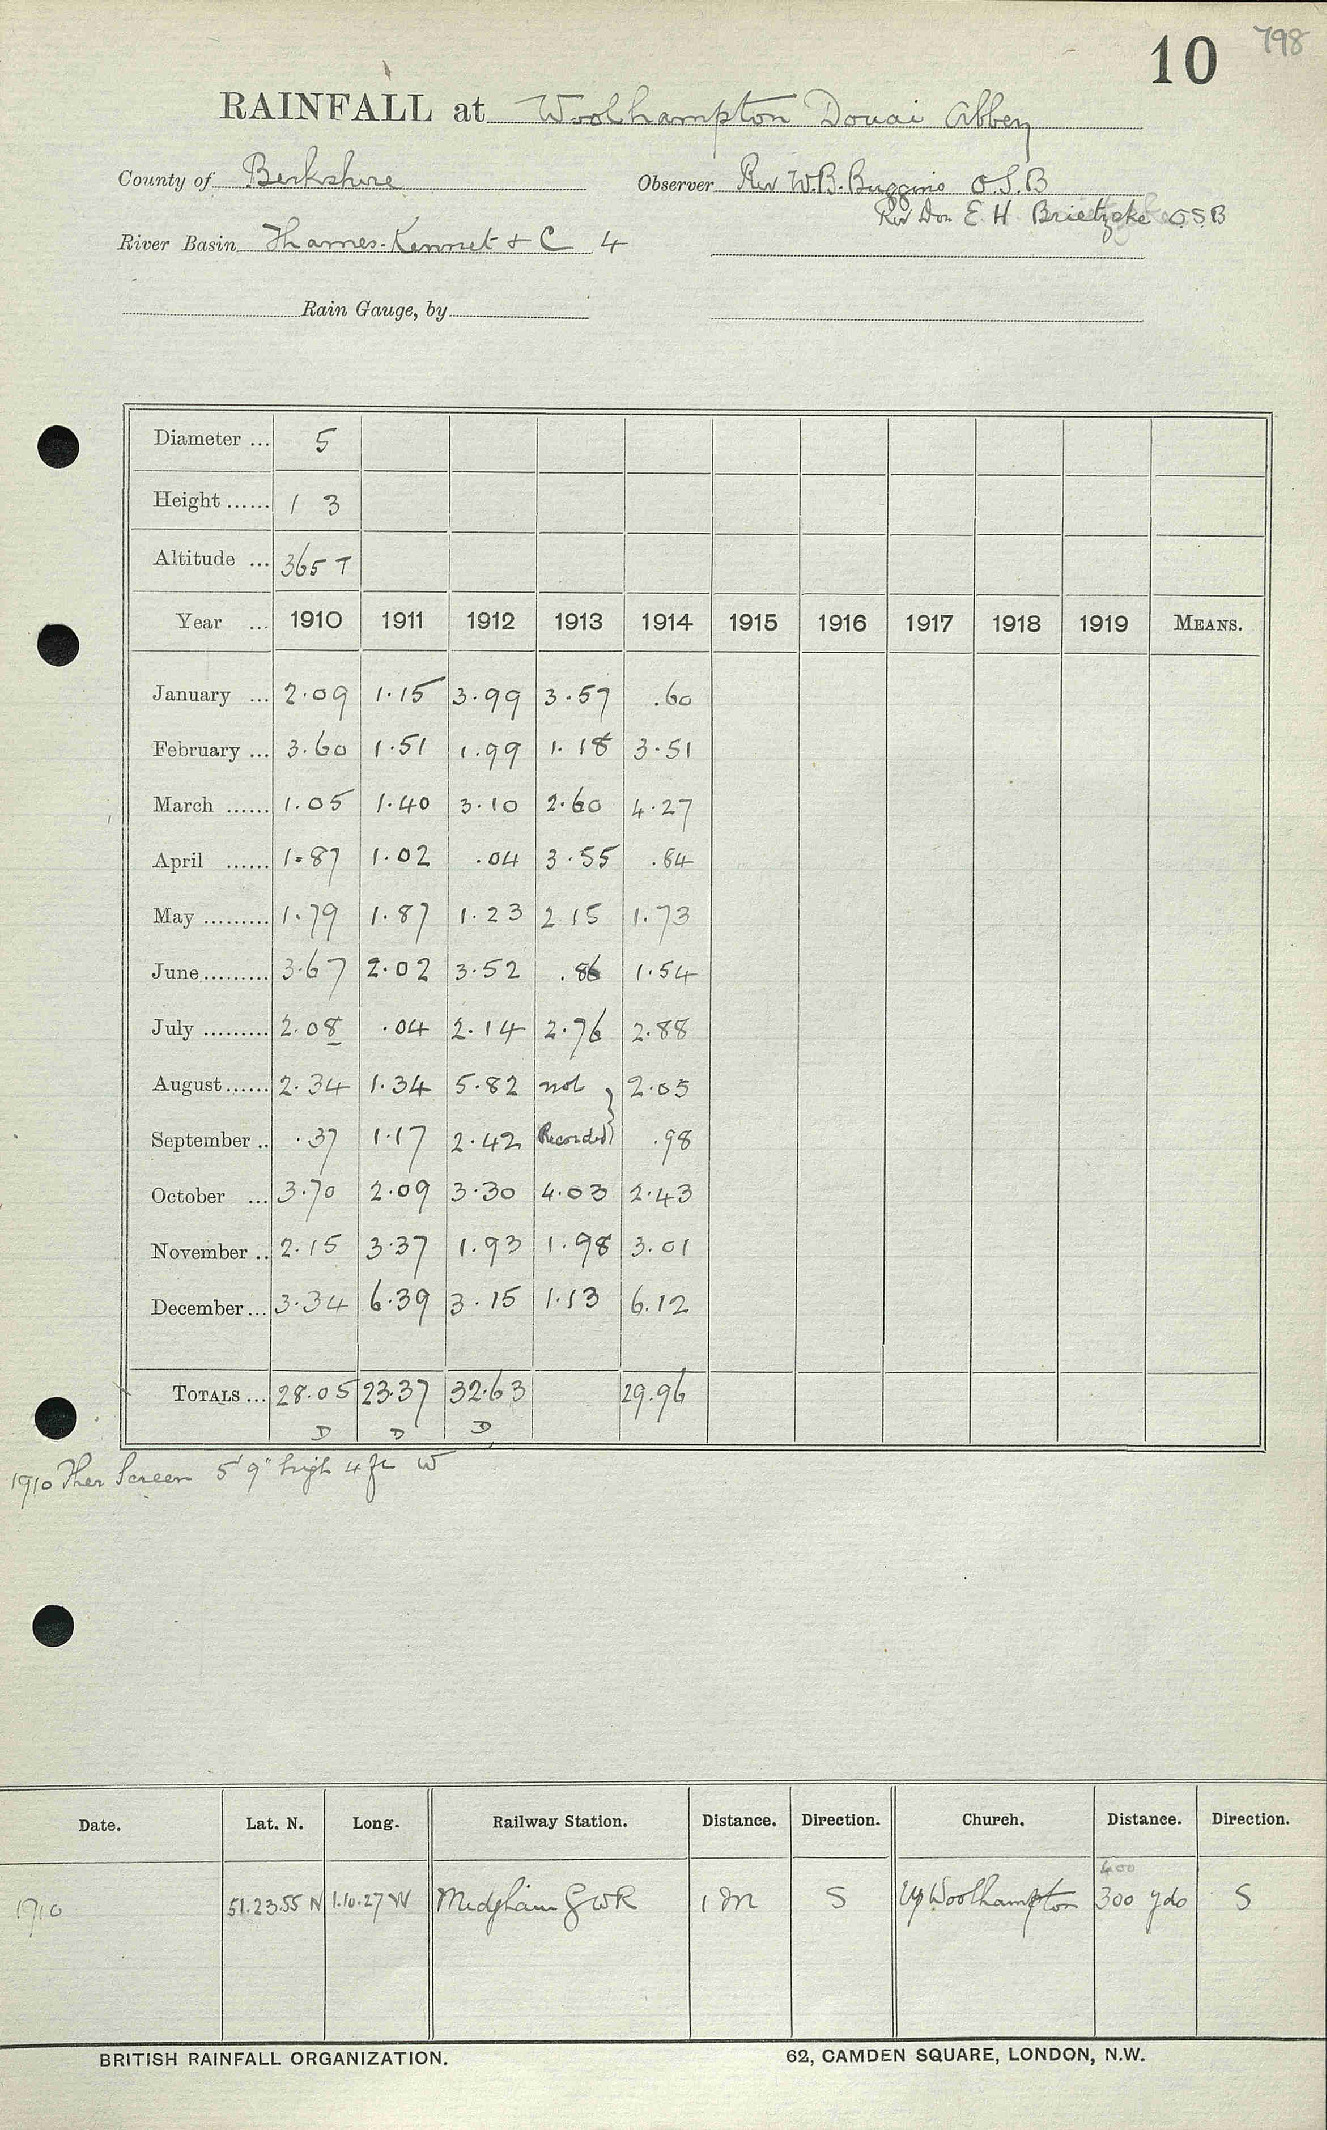 10 798
RAINFALL at Woolhampton Douai Abbey
County of Berkshire Observer Rev W.B. Buggins O.S.B
Rev Dom E H Brietzcke OSB
River Basin Thames-Kennet & C 4
Rain Gauge, by
Diameter ... 5
Height ...... 1 3
Altitude ... 365 T
Year ... 1910 1911 1912 1913 1914 1915 1916 1917 1918 1919 MEANS.
January ... 2.09 1.15 3.99 3.57 .60
February ... 3.60 1.51 1.99 1.18 3.51
March ...... 1.05 1.40 3.10 2.60 4.27
April ...... 1.87 1.02 .04 3.55 .84
May ......... 1.79 1.87 1.23 2 15 1.73
June ......... 3.67 2.02 3.52 .86 1.54
July ......... 2.08 .04 2.14 2.76 2.88
August ...... 2.34 1.34 5.82 not } 2.05
September .. .37 1.17 2.42 Recorded } .98
October ... 3.70 2.09 3.30 4.03 2.43
November .. 2.15 3.37 1.93 1.98 3.01
December ... 3.34 6.39 3.15 1.13 6.12
TOTALS ... 28.05 23.37 32.63 29.96
D D D
1910 Ther Screen 5' 9" high 4 ft W
Date. Lat. N. Long. Railway Station. Distance. Direction. Church. Distance. Direction.
400
1910 51.23.55 N 1.10.27 W Midgham GWR 1 m S Up Woolhampton 300 yds S
BRITISH RAINFALL ORGANIZATION. 62, CAMDEN SQUARE, LONDON, N.W.